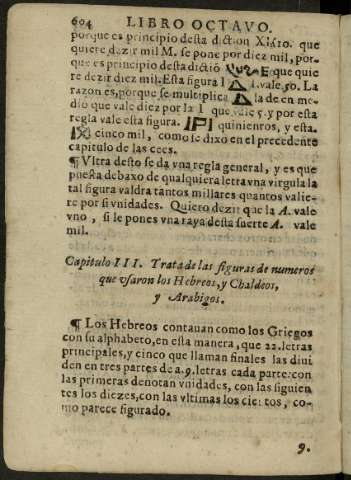 604 LIBRO OCTAVO.
porque es principio desta diction Χίλιο. que
quiere dezir mil M. se pone por diez mil, por-
que es principio desta dictiõ que quie
re dezir diez mil. Esta figura vale 50. La
razon es, porque se multiplica la de en me-
dio que vale diez por la I que vale 5. y por esta
regla vale esta figura. quinientos, y esta.
cinco mil, como se dixo en el precedente
capitulo de las cees.
¶ Vltra desto se da vna regla general, y es que
puesta debaxo de qualquiera letra vna virgula la
tal figura valdra tantos millares quantos valie-
re por si vnidades. Quiero dezir que la A. vale
vno, si le pones vna raya desta suerte A. vale
mil.
Capitulo III. Trata de las figuras de numeros
que vsaron los Hebreos, y Chaldeos,
y Arabigos.
¶ Los Hebreos contauan como los Griegos
con su alphabeto, en esta manera, que 22. letras
principales, y cinco que llaman finales las diui
den en tres partes de a. 9. letras cada parte: con
las primeras denotan vnidades, con las siguien
tes los diezes, con las vltimas los cientos, co-
mo parece figurado.
9.